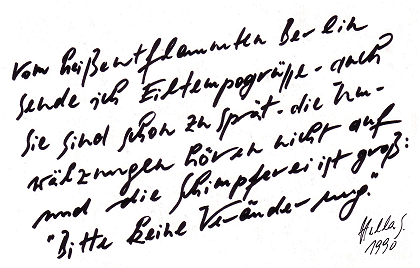 Vom heißentflammten Berlin
sende ich Eiltempogrüße - auch
sie sind schon zu spät - die Um-
wälzungen hören nicht auf
und die Schimpferei ist groß:
"Bitte keine Veränderung."
Hella S.
1990